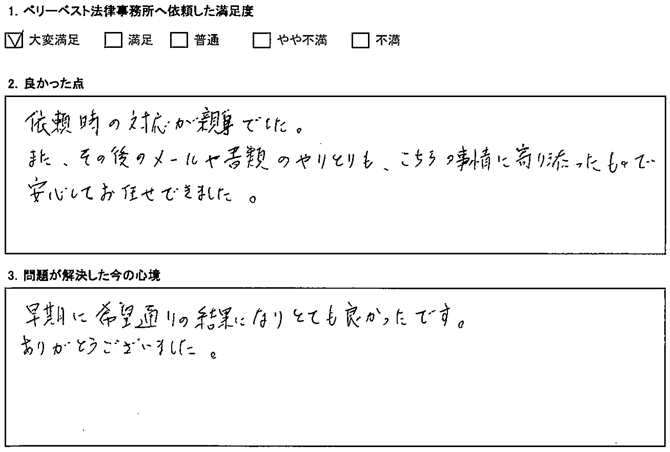 1. ベリーベスト法律事務所へ依頼した満足度
☑ 大変満足 □ 満足 □ 普通 □ やや不満 □ 不満
2. 良かった点
依頼時の対応が親身でした。
また、その後のメールや書類のやりとりも、こちらの事情に寄り添ったもので
安心してお任せできました。
3. 問題が解決した今の心境
早期に希望通りの結果になりとても良かったです。
ありがとうございました。